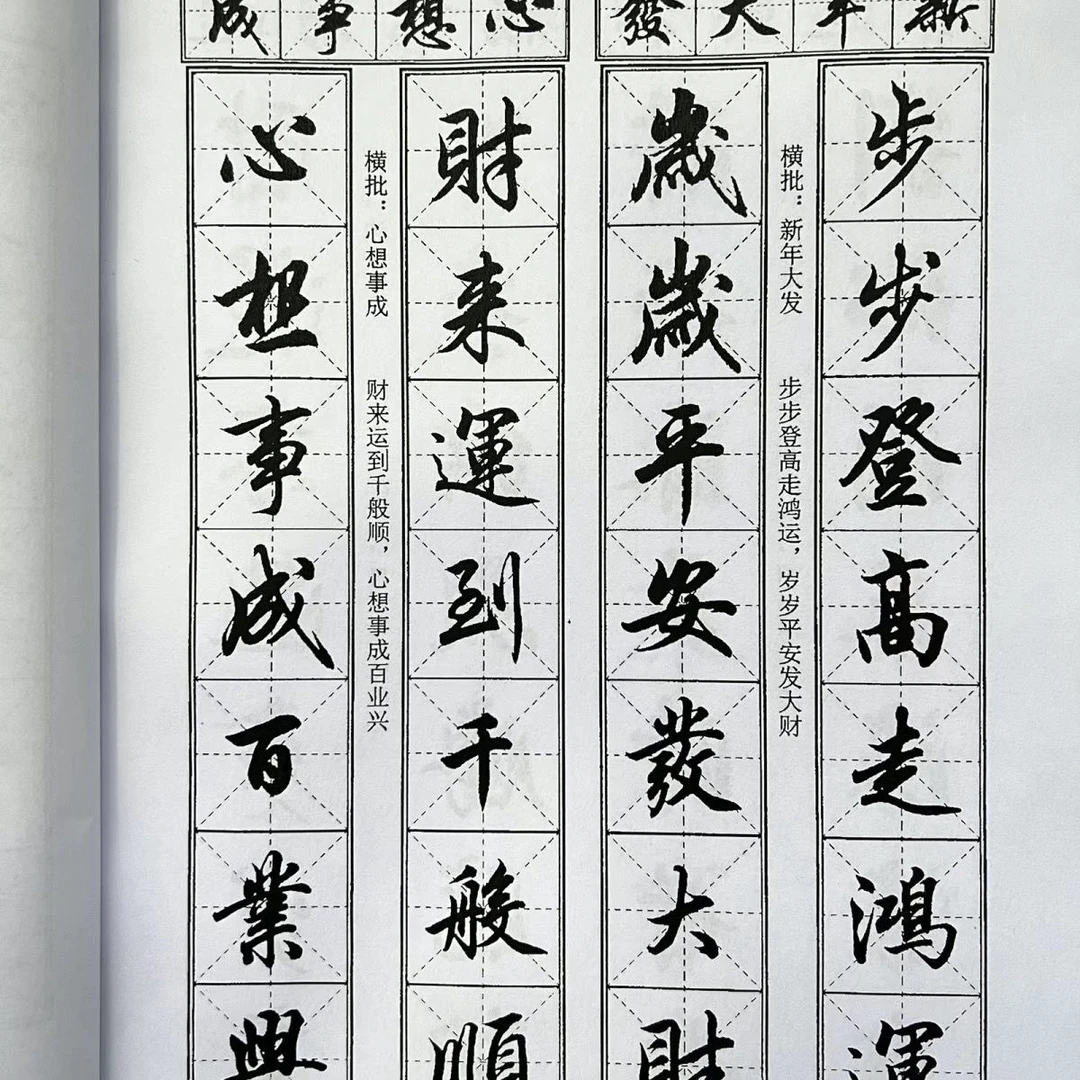 新年大發
步步登高走鴻運
横批：新年大发
步步登高走鸿运，岁岁平安发大财
歲歲平安發大財
心想事成
財来運到千般順
横批：心想事成
财来运到千般顺，心想事成百业兴
心想事成百業興